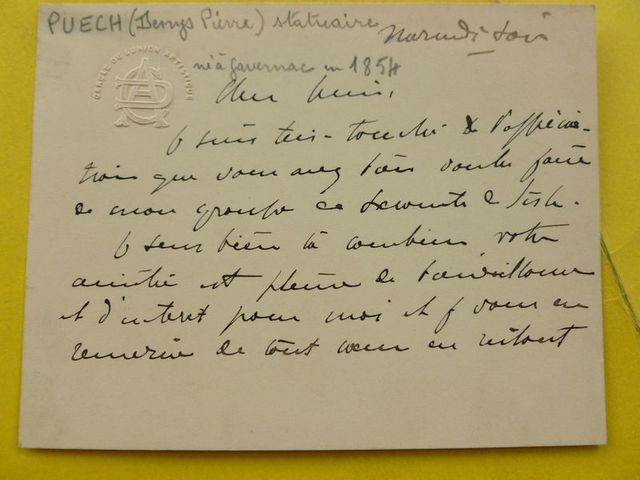 PUECH (Denys Pierre) statuaire
né à Gavernac en 1854
CERCLE DE L'UNION ARTISTIQUE
Mercredi soir
Cher Ami,
Je suis très-touché de l'apprécia-
tion que vous avez bien voulu faire
de mon groupe
Je sens bien là combien votre
amitié est pleine de bienveillance
et d'interet pour moi et je vous en
remercie de tout cœur en